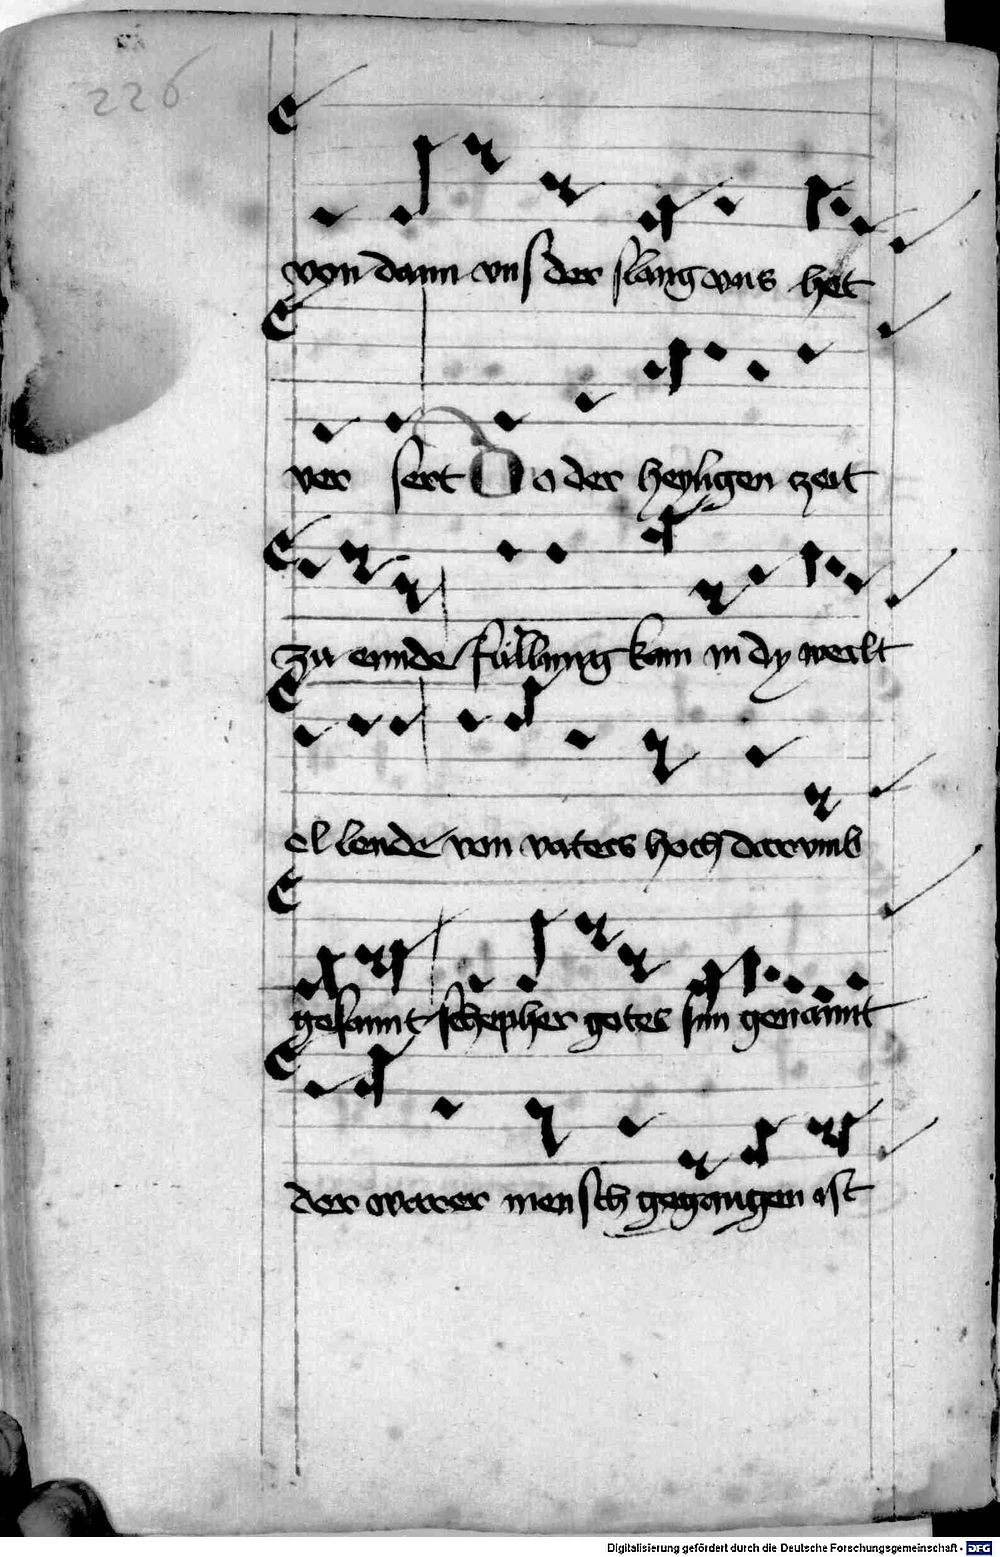 226
von dann vns der slang vns het
ver sert Do der heyligen zeit
zu ennde fullung kam in dy werlt
el lende von vaters hoch darvmb
gesannt schepher gotes sun genannt
der warer mensch gegangen ist
Digitalisierung gefördert durch die Deutsche Forschungsgemeinschaft - DFG